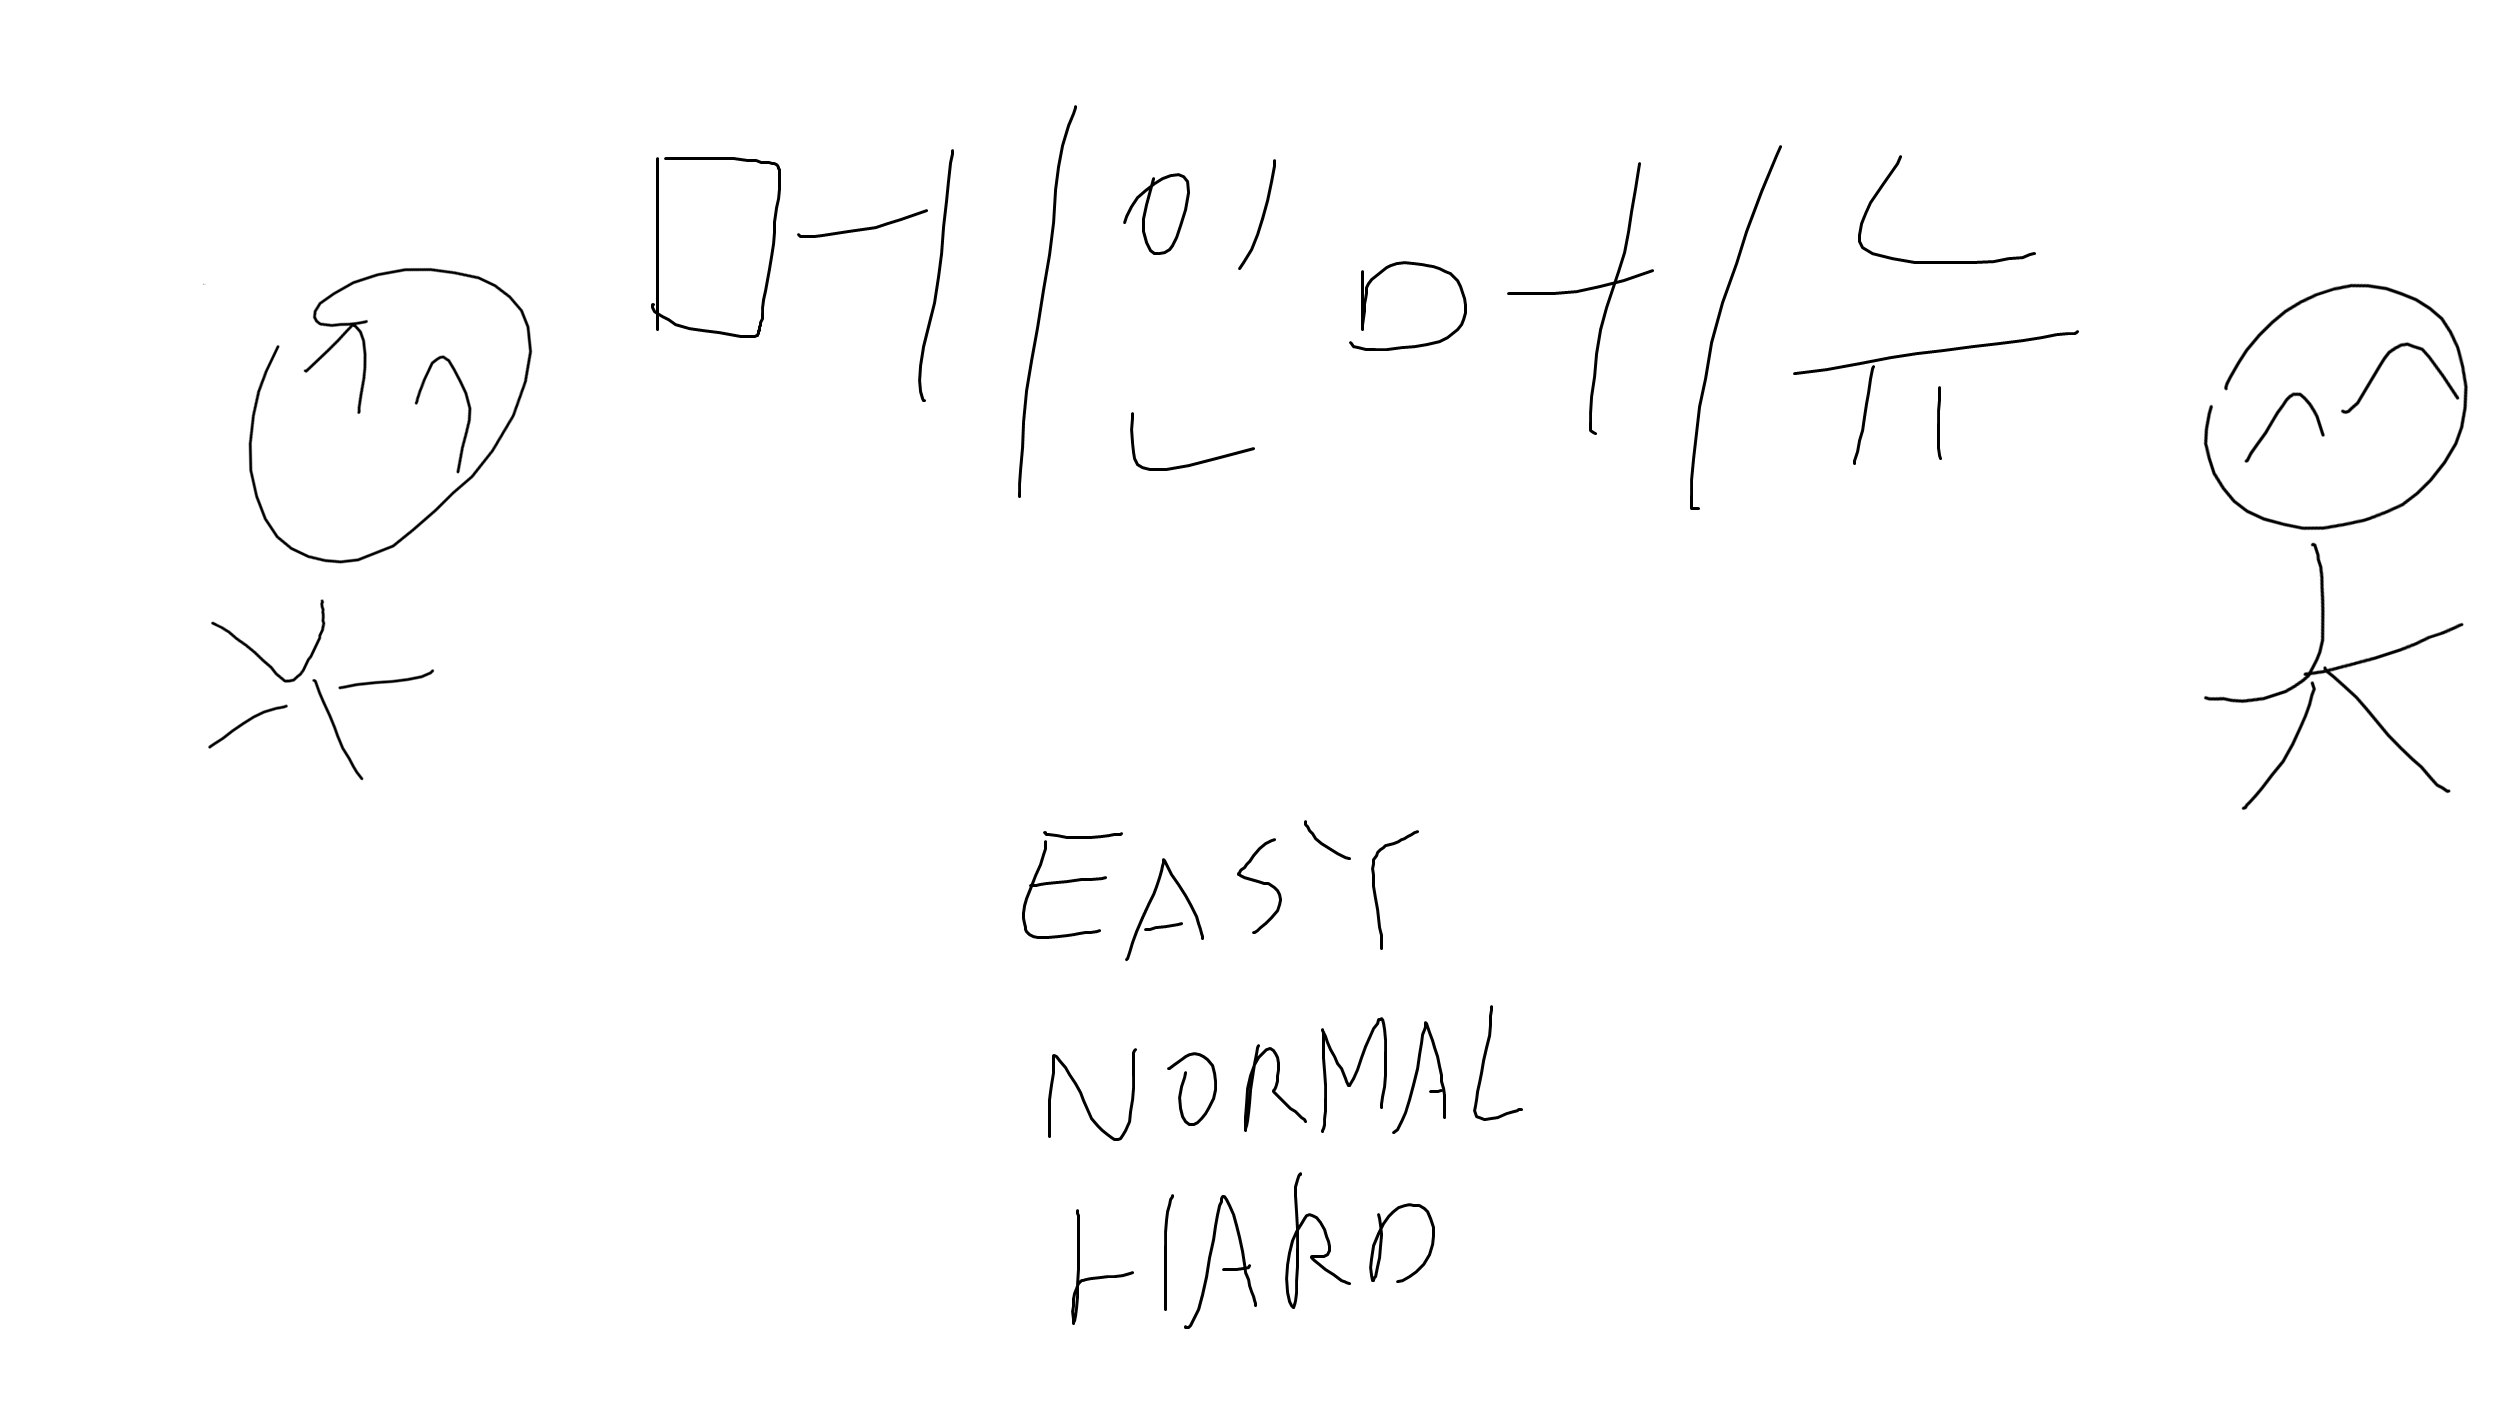 메인메뉴
EASY
NORMAL
HARD